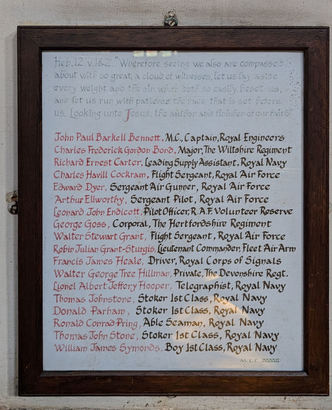 Heb. 12 v. 1 & 2. "Wherefore seeing we also are compassed
about with so great a cloud of witnesses, let us lay aside
every weight and the sin which doth so easily beset us,
and let us run with patience the race that is set before
us, Looking unto Jesus, the author and finisher of our faith"
John Paul Barkell Bennett, M.C., Captain, Royal Engineers
Charles Frederick Gordon Bond, Major, The Wiltshire Regiment
Richard Ernest Carter, Leading Supply Assistant, Royal Navy
Charles Havill Cockram, Flight Sergeant, Royal Air Force
Edward Dyer, Sergeant Air Gunner, Royal Air Force
Arthur Ellworthy, Sergeant Pilot, Royal Air Force
Leonard John Endicott, Pilot Officer, R.A.F. Volunteer Reserve
George Goss, Corporal, The Hertfordshire Regiment
Walter Stewart Grant, Flight Sergeant, Royal Air Force
Robin Julian Grant-Sturgis, Lieutenant Commander, Fleet Air Arm
Francis James Heale, Driver, Royal Corps of Signals
Walter George Tree Hillman, Private, The Devonshire Regt.
Lionel Albert Jeffery Hooper, Telegraphist, Royal Navy
Thomas Johnstone, Stoker 1st Class, Royal Navy
Donald Parham, Stoker 1st Class, Royal Navy
Ronald Conrad Pring, Able Seaman, Royal Navy
Thomas John Stone, Stoker 1st Class, Royal Navy
William James Symonds, Boy 1st Class, Royal Navy